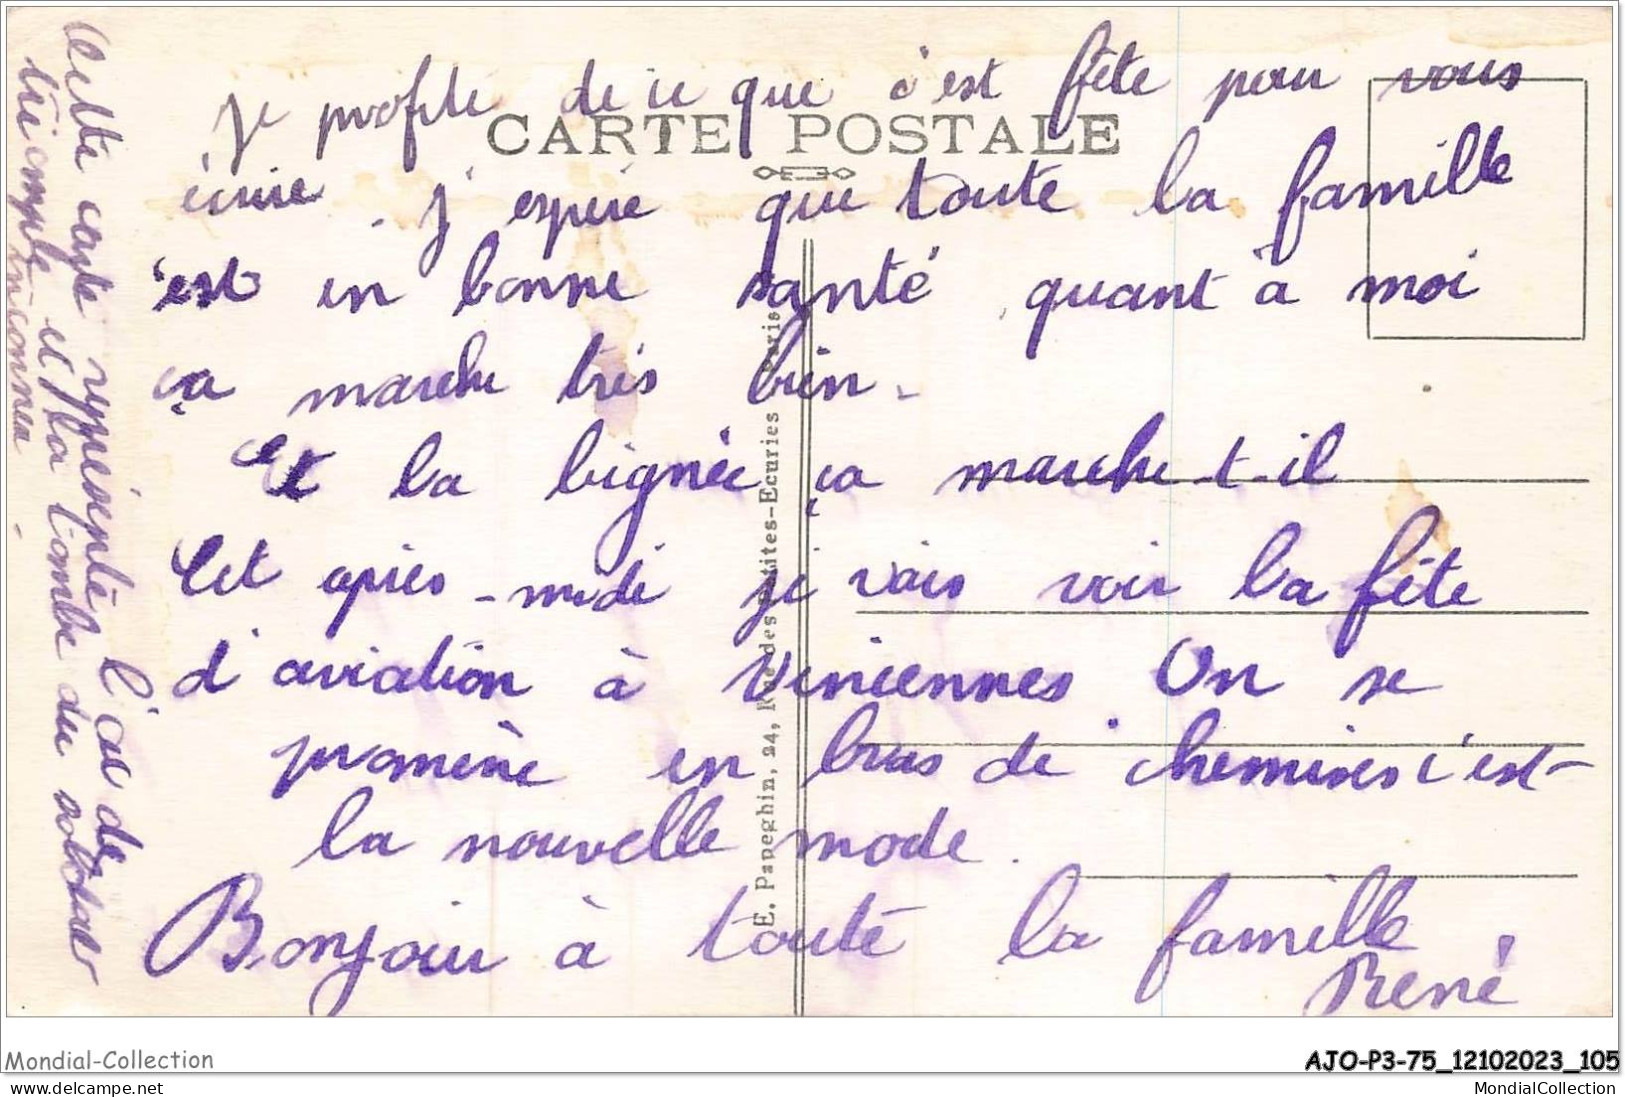 Je profite de ce que c'est fête pour vous
CARTE POSTALE
écrire. j'espère que toute la famille
est en bonne santé, quant à moi
ça marche très bien.
Et la lignée ça marche-t-il
Cet après-midi je vais voir la fête
d'aviation à Vincennes. On se
promène en bras de chemises c'est
la nouvelle mode.
Bonjour à toute la famille
René
Cette carte représente l'arc de
triomphe et la tombe du soldat
inconnu.
E. Papeghin, 24, Rue des Petites-Ecuries Paris
Mondial-Collection
AJO-P3-75_12102023_105
www.delcampe.net
MondialCollection